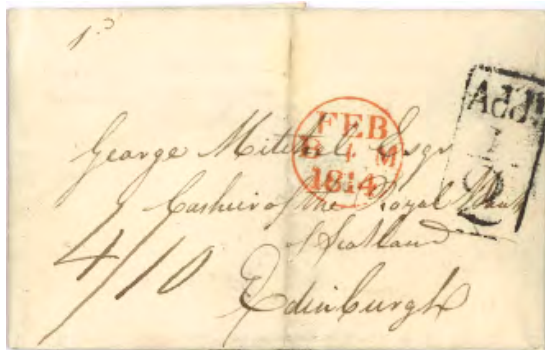 FEB
B 4 M
1814
Addl
1
2
George Mitchel Esqr
Cashier of the Royal Bank
of Scotland
Edinburgh
4/10